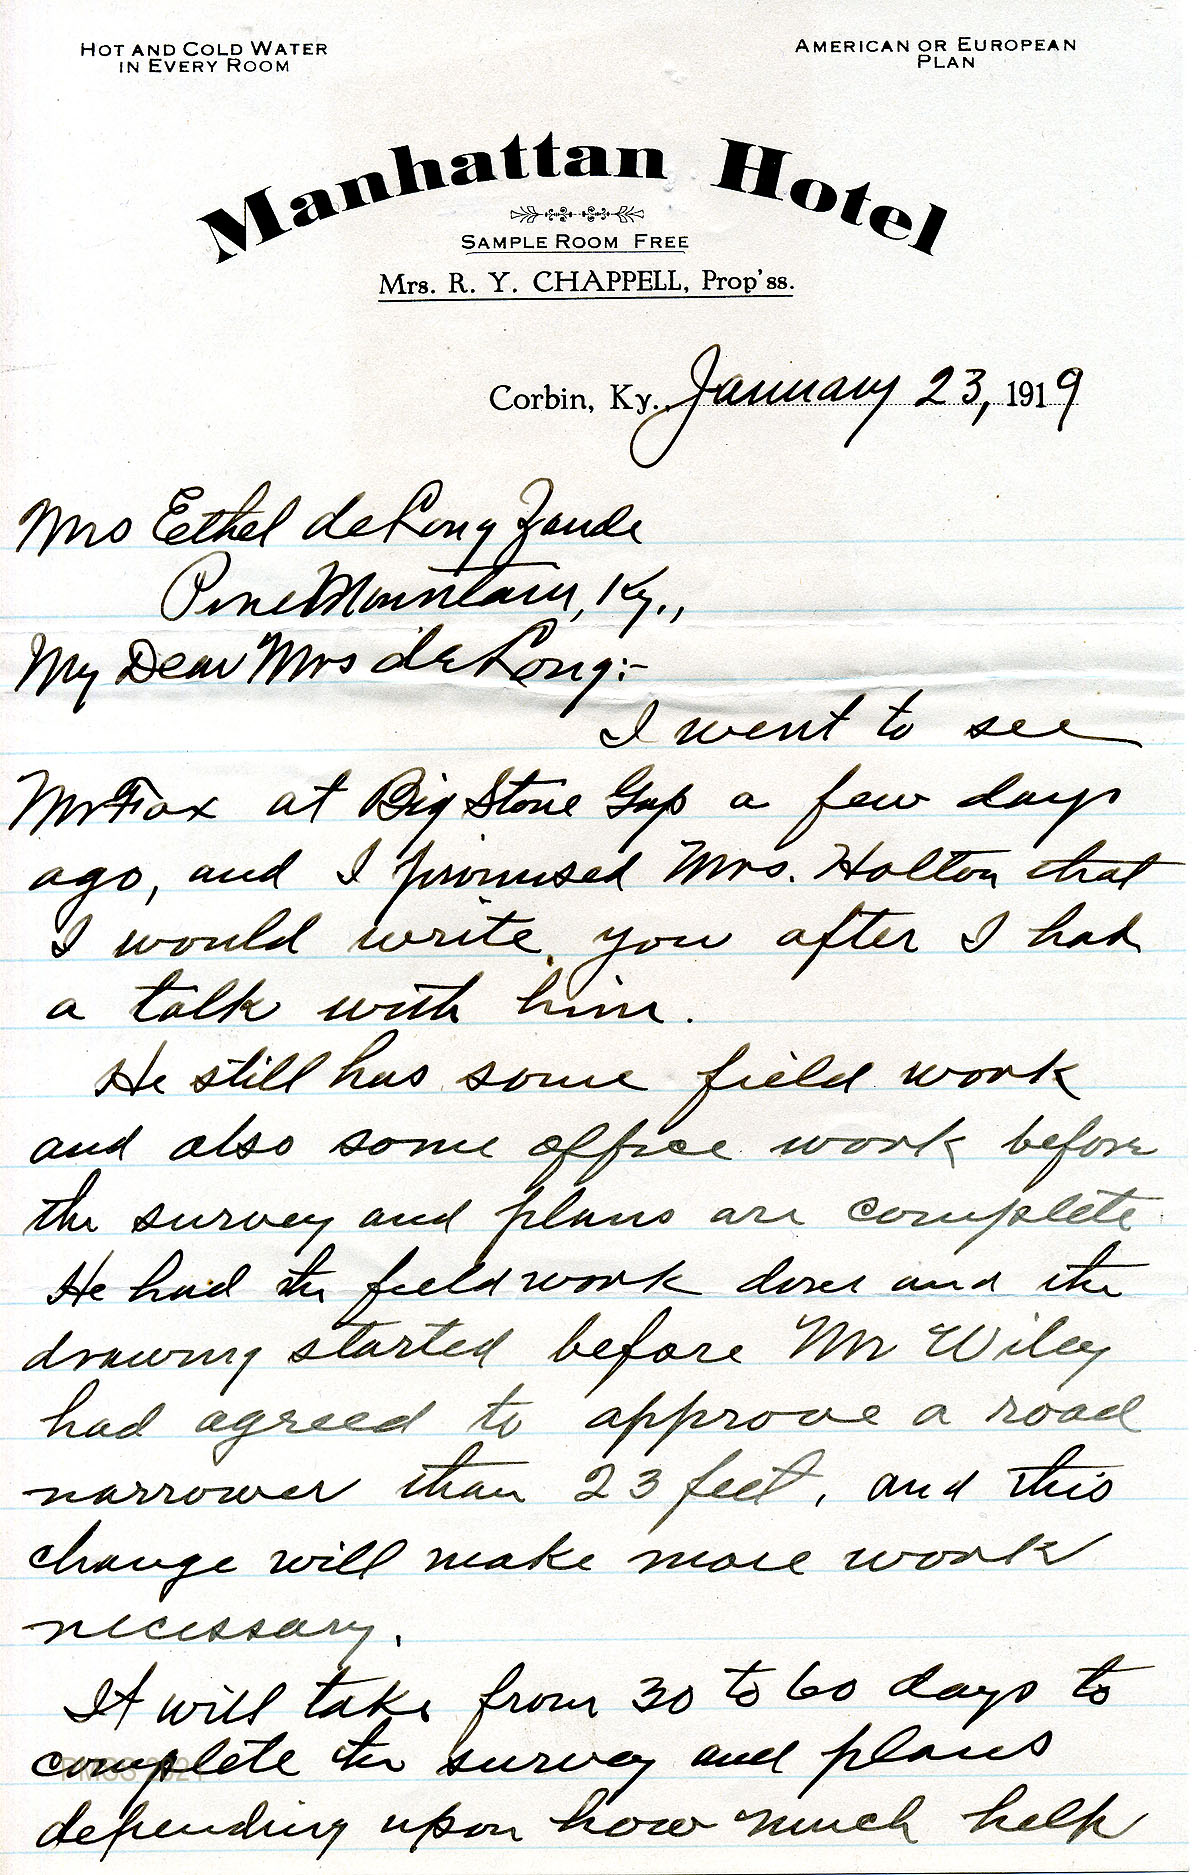 HOT AND COLD WATER
IN EVERY ROOM
AMERICAN OR EUROPEAN
PLAN
Manhattan Hotel
SAMPLE ROOM FREE
Mrs. R. Y. CHAPPELL, Prop'ss.
Corbin, Ky. January 23, 1919
Mrs Eethel de Long Zande
Pine Mountain, Ky.,
My Dear Mrs de Long:-
I went to see
Mr Fox at Big Stone Gap a few days
ago, and I promised Mrs. Holton that
I would write you after I had
a talk with him.
He still has some field work
and also some office work before
the survey and plans are complete
He had the field work done and the
drawing started before Mr Wiley
had agreed to approve a road
narrower than 23 feet, and this
change will make more work
necessary.
It will take from 30 to 60 days to
complete the survey and plans
depending upon how much help
PMSS 2021